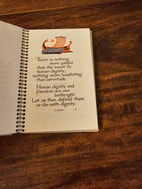 There is nothing
more painful
than the insult to
human dignity,
nothing more humiliating
than servitude.
Human dignity and
freedom are our
birthright.
Let us then defend them
or die with dignity.